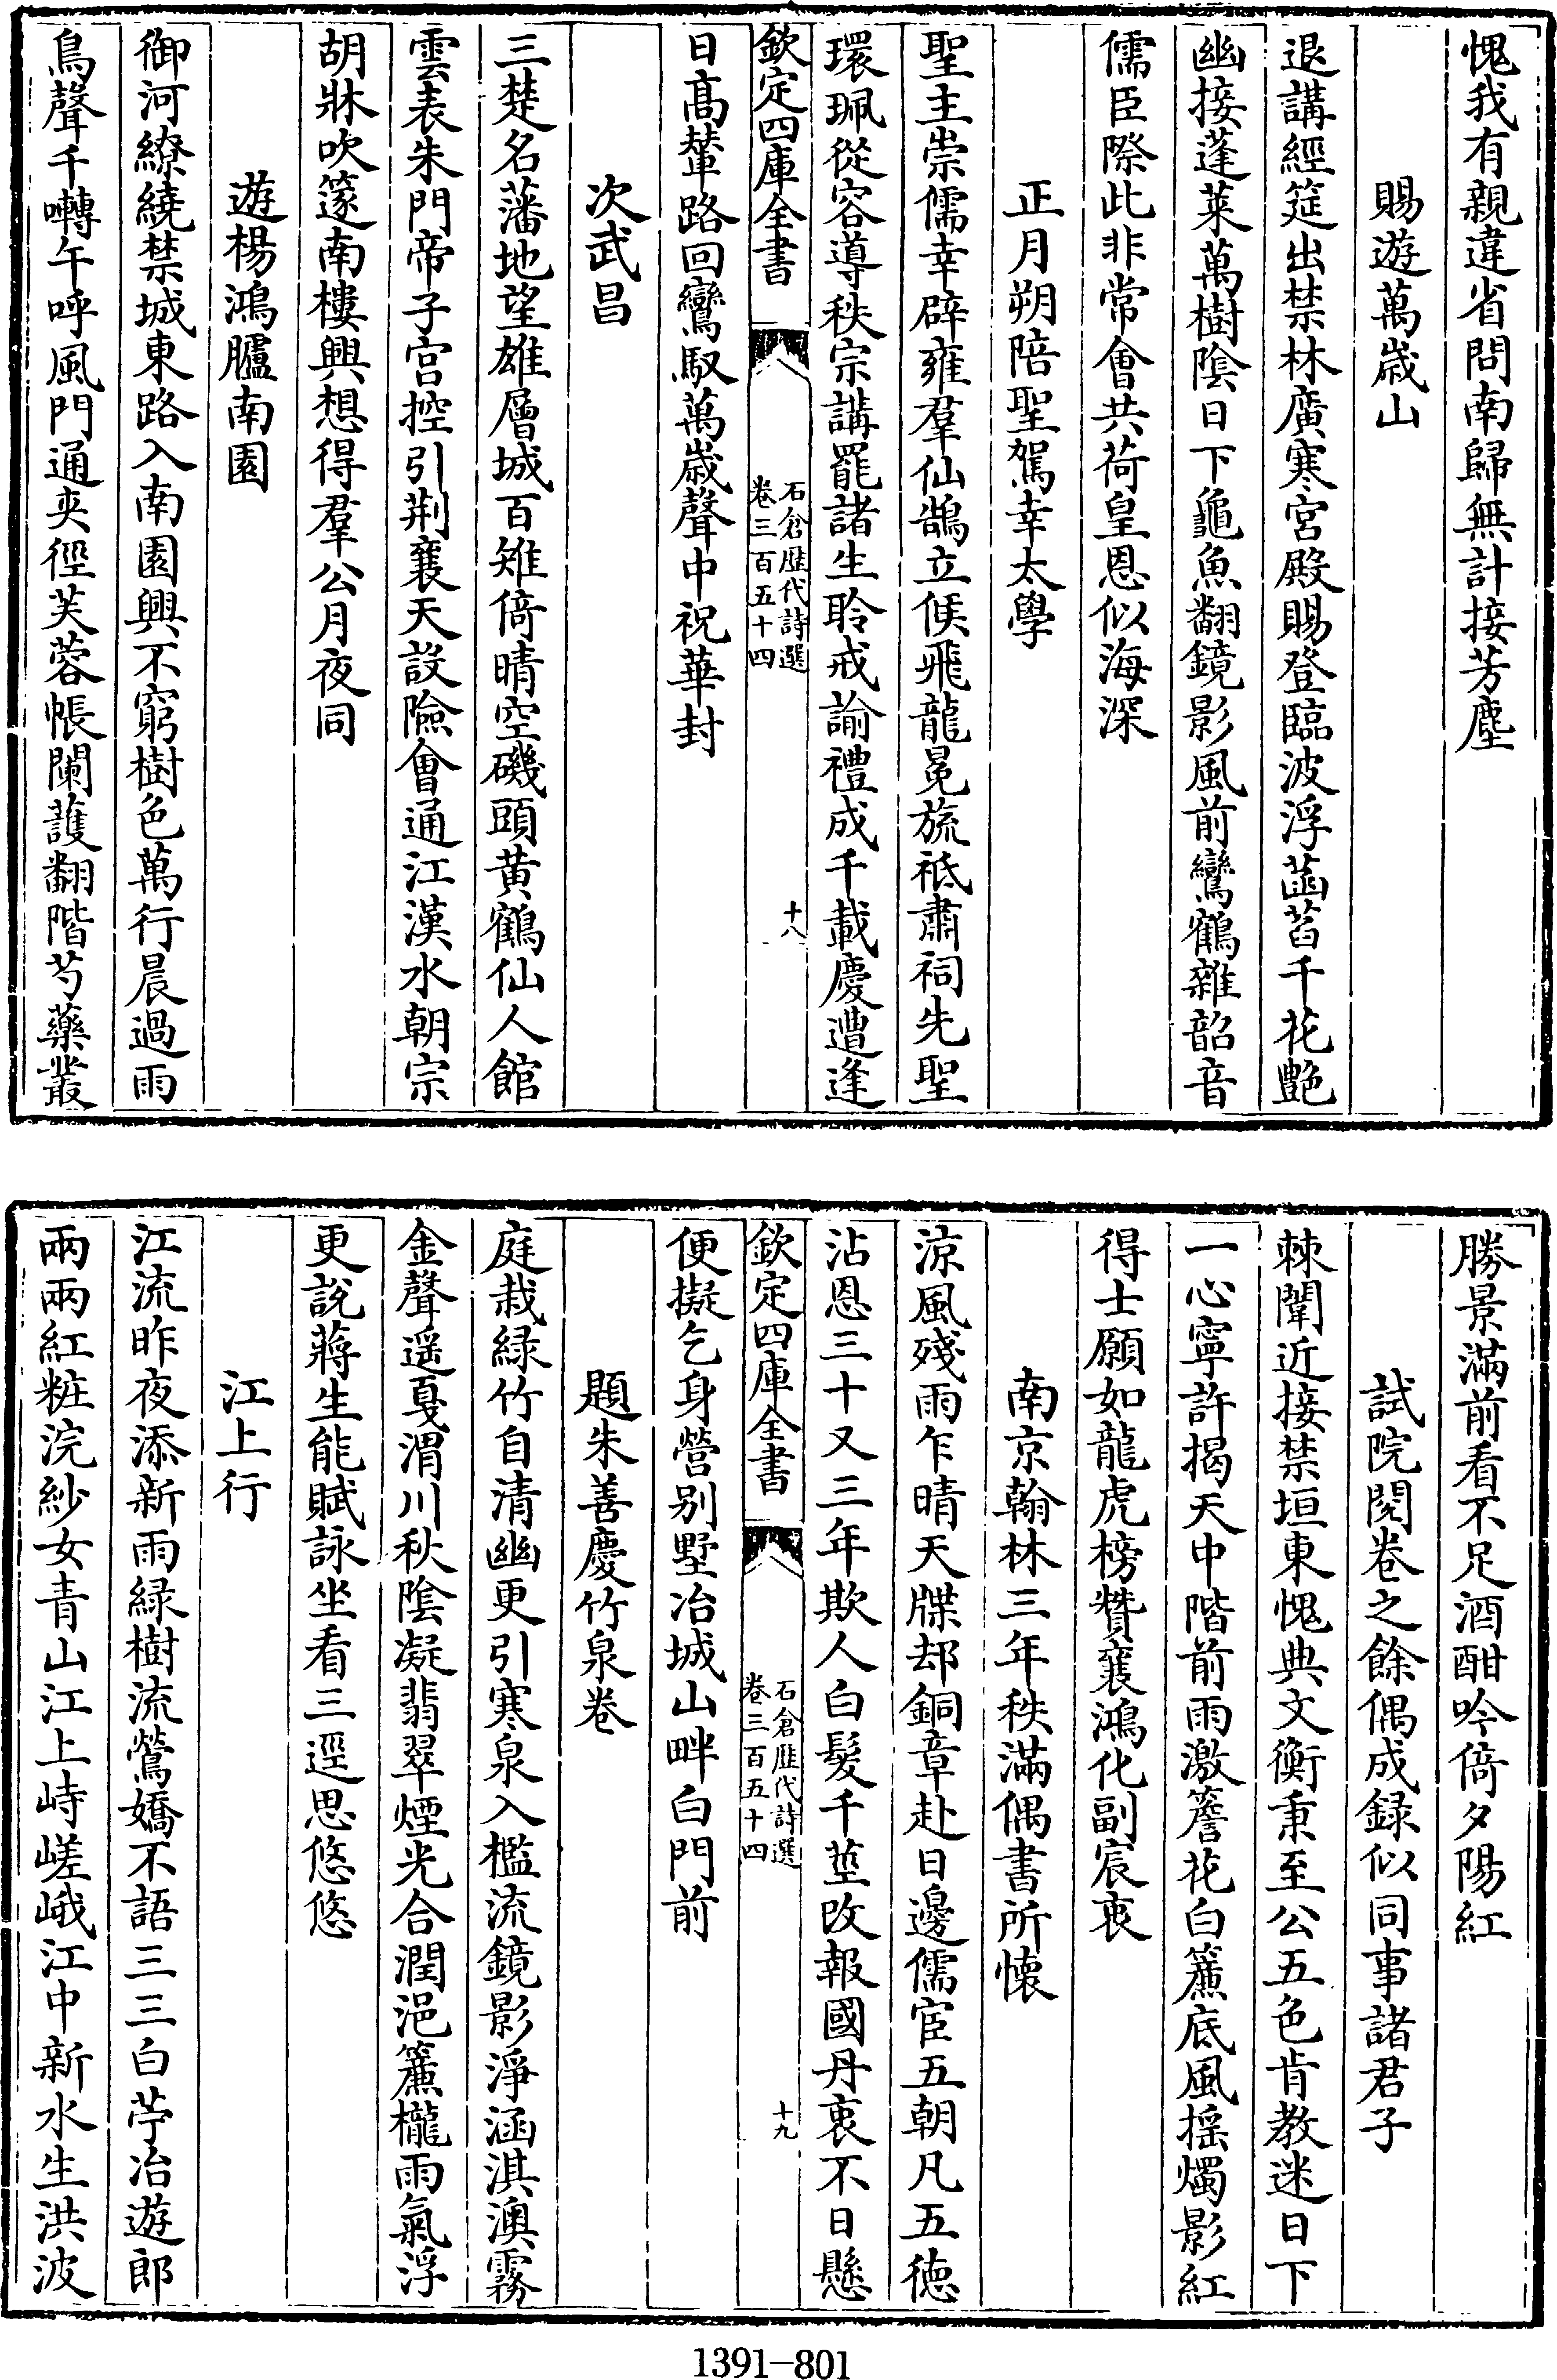 愧我有親違省問南歸無計接芳塵
賜遊萬歲山
退講經筵出禁林廣寒宮殿賜登臨波浮菡萏千花艷
幽接蓬萊萬樹陰日下龜魚翻鏡影風前鸞鶴雜韶音
儒臣際此非常會共荷皇恩似海深
正月朔陪聖駕幸太學
聖主崇儒幸辟雍羣仙鵠立候飛龍冕旒祗肅祠先聖
環珮從容導秩宗講罷諸生聆戒諭禮成千載慶遭逢
欽定四庫全書
石倉歷代詩選
卷三百五十四
十八
日高輦路回鸞馭萬歲聲中祝華封
次武昌
三楚名藩地望雄層城百雉倚晴空磯頭黄鶴仙人館
雲表朱門帝子宫控引荆襄天設險會通江漢水朝宗
胡牀吹篴南樓興想得羣公月夜同
遊楊鴻臚南園
御河繚繞禁城東路入南園興不窮樹色萬行晨過雨
鳥聲千囀午呼風門通夾徑芙蓉帳闌護翻階芍藥叢
勝景滿前看不足酒酣吟倚夕陽紅
試院閱卷之餘偶成録似同事諸君子
棘闈近接禁垣東愧典文衡秉至公五色肯教迷日下
一心寧許揭天中階前雨激簷花白簾底風摇燭影紅
得士願如龍虎榜贊襄鴻化副宸衷
南京翰林三年秩滿偶書所懷
涼風殘雨乍晴天牒却銅章赴日邊儒宦五朝凡五徳
沾恩三十又三年欺人白髮千莖改報國丹衷不日懸
欽定四庫全書
石倉歷代詩選
卷三百五十四
十九
便擬乞身營别墅冶城山畔白門前
題朱善慶竹泉卷
庭栽緑竹自清幽更引寒泉入檻流鏡影淨涵淇澳霧
金聲遥戛渭川秋陰凝翡翠煙光合潤浥簾櫳雨氣浮
更說蔣生能賦詠坐看三逕思悠悠
江上行
江流昨夜添新雨緑樹流鶯嬌不語三三白苧冶遊郎
兩兩紅粧浣紗女青山江上峙嵯峨江中新水生洪波
1391-801